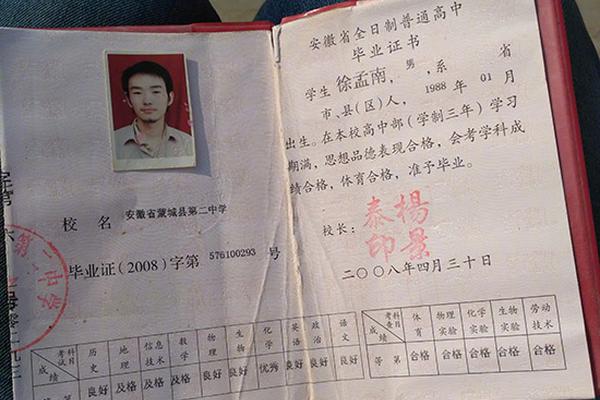 校名 安徽省蒙城县第二中学
毕业证(2008)字第 576100293 号
考试科目 历史 地理 信息技术 数学 物理 生物 化学 英语 政治 语文
成绩 良好 及格 及格 及格 良好 良好 优秀 良好 良好 良好
安徽省全日制普通高中
毕业证书
学生 徐孟南,男,系 省
市、县(区)人,1988 年 01 月
出生。在本校高中部(学制三年)学习
期满,思想品德表现合格,会考学科成
绩合格,体育合格,准予毕业。
校长: 杨景泰印
二〇〇八年四月三十日
考查科目 体育 物理实验 化学实验 生物实验 劳动技术
成绩
等第 合格 合格 合格 合格 合格